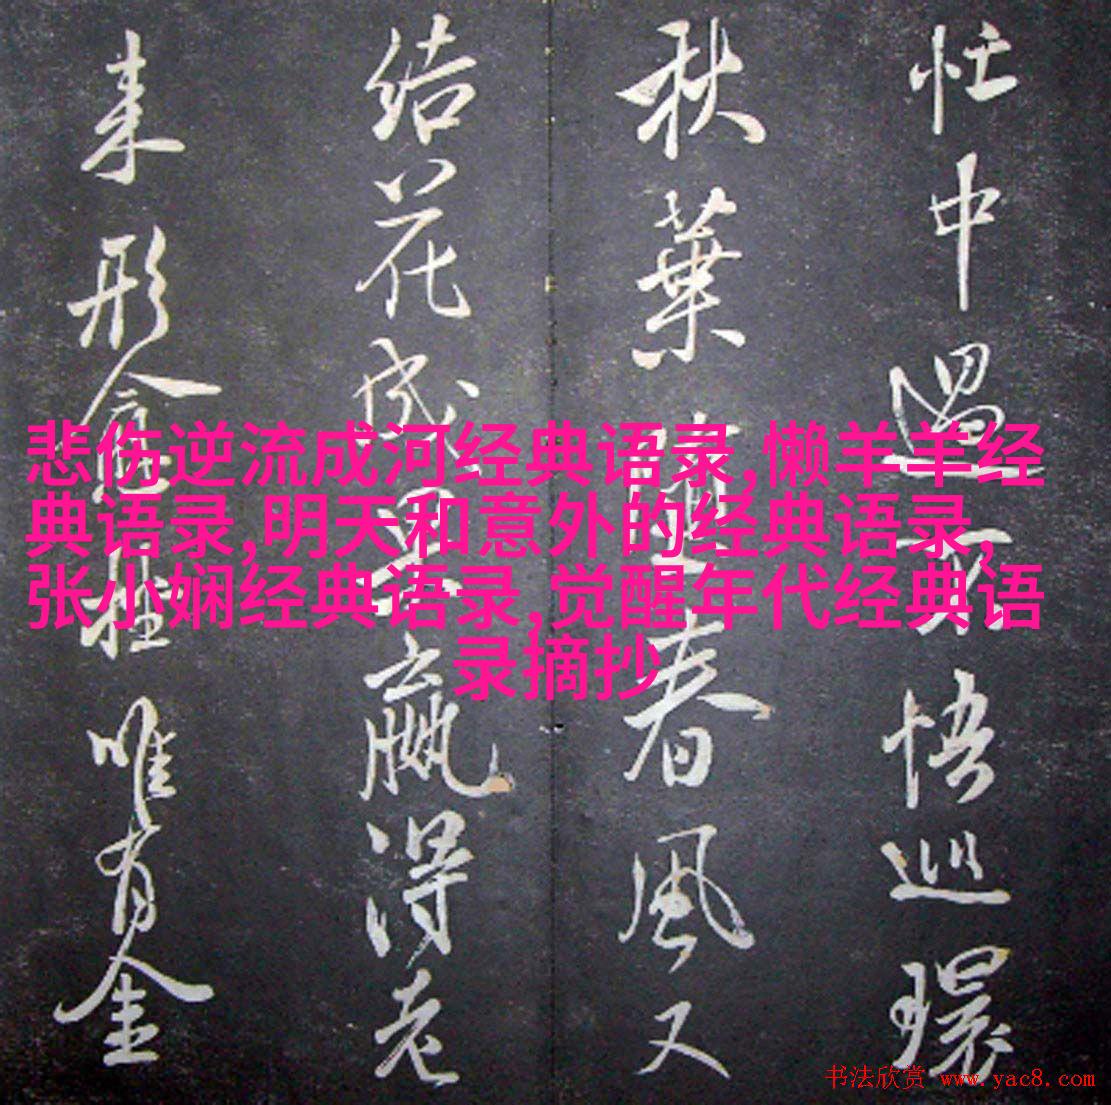 忙中過悟巡環
秋葉春風又
结花成贏得老
来形唯有金
悲伤逆流成河经典语录,懒羊羊经
典语录,明天和意外的经典语录,
张小娴经典语录,觉醒年代经典语
录摘抄
书法欣赏 www.yac8.com